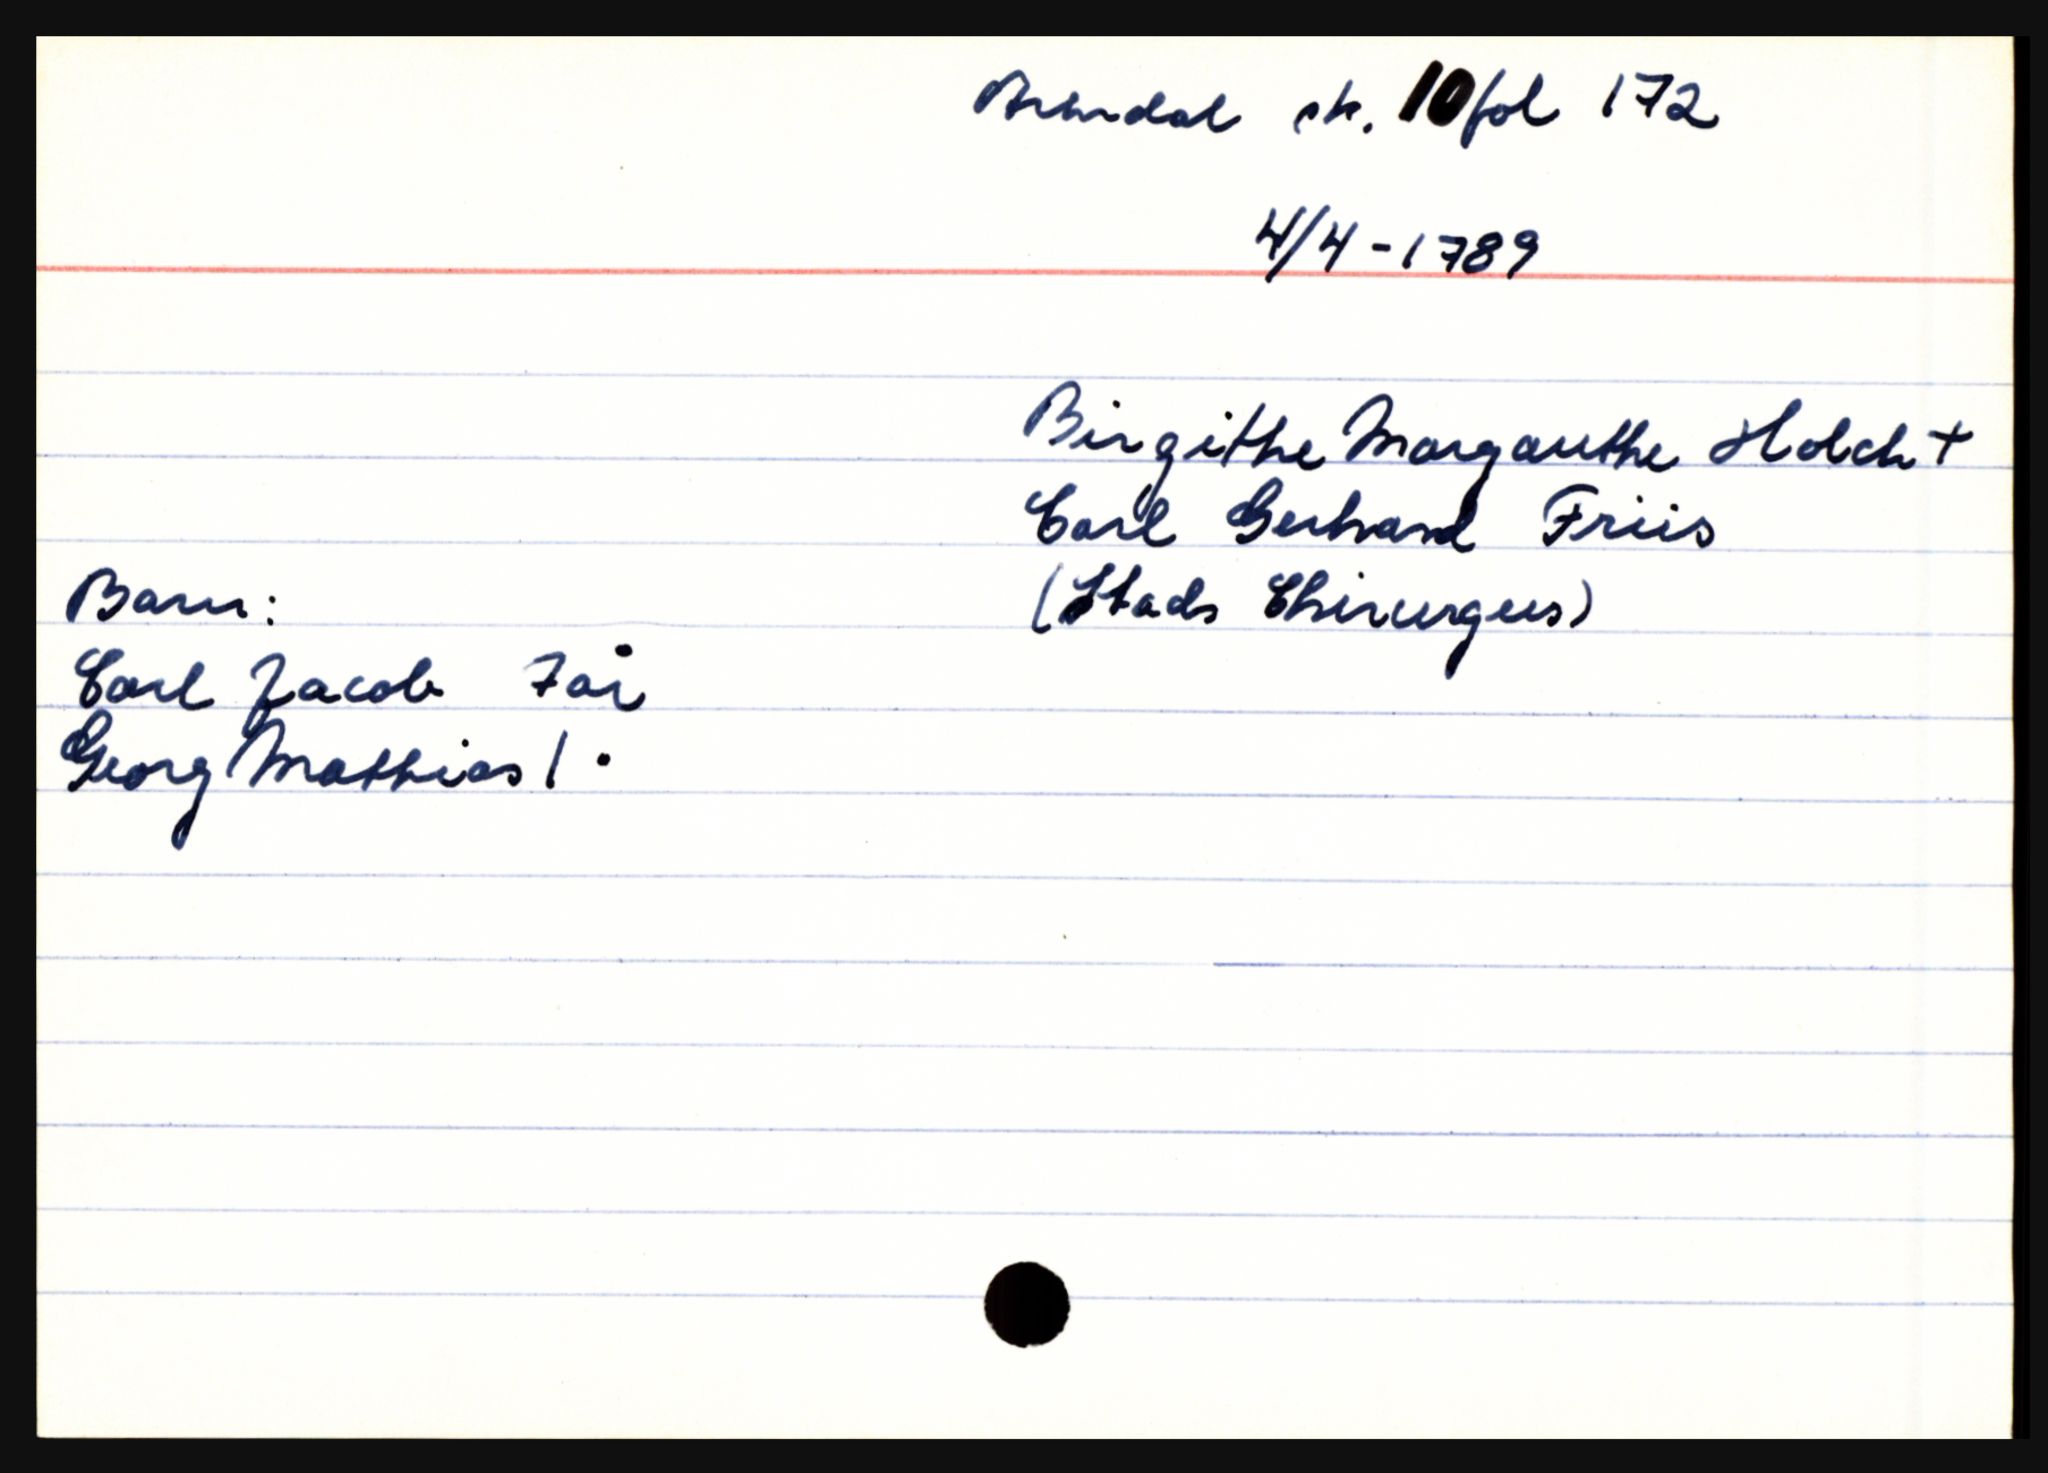 Arendal sk. 10 fol 172
4/4 - 1789
Birgithe Margarethe Holch +
Carl Gerhard Friis
(Stads Chirurgus)
Barn:
Carl Jacob 7 år
Georg Mathias 1 "